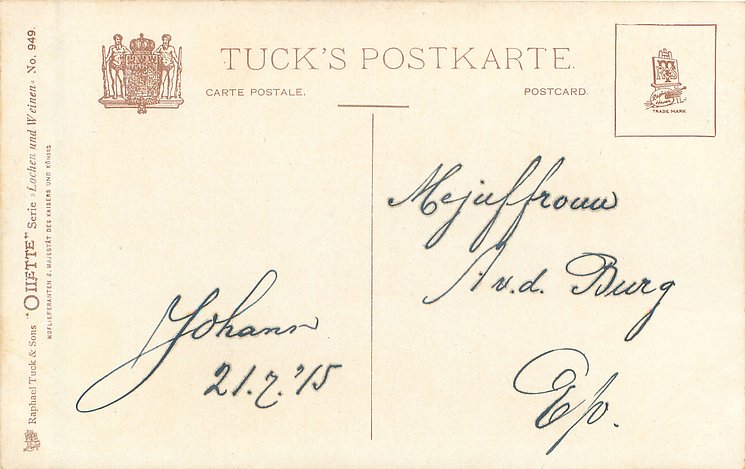 TUCK'S POSTKARTE.
CARTE POSTALE.
POSTCARD.
TRADE MARK
Mejuffrouw
A v.d. Burg
Ep.
Johann
21.7.'15
Raphael Tuck & Sons "OILETTE" Serie »Lachen und Weinen« No. 949.
HOFLIEFERANTEN S. MAJESTÄT DES KAISERS UND KÖNIGS